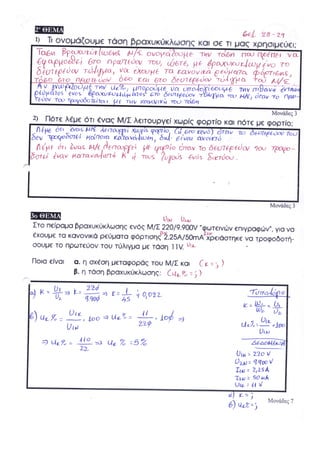 2ο ΘΕΜΑ
Σελ. 28-29
1) Τι ονομάζουμε τάση βραχυκύκλωσης και σε τι μας χρησιμεύει;
Τάση βραχυκύκλωσης Μ/Σ ονομάζουμε την τάση που πρέπει να
εφαρμοσθεί στο πρωτεύον του, ώστε, με βραχυκυκλωμένο το
δευτερεύον τύλιγμα, να έχουμε τα κανονικά ρεύματα φόρτισης,
τόσο στο πρωτεύον όσο και στο δευτερεύον τύλιγμα του Μ/Σ.
Αν γνωρίζουμε την uκ%, μπορούμε να υπολογίσουμε την πιθανή ένταση
ρεύματος ενός βραχυκυκλώματος στο δευτερεύον τύλιγμα του Μ/Σ, όταν το πρω-
τεύον του τροφοδοτείται με την κανονική του τάση
Μονάδες 3
2) Πότε λέμε ότι ένας Μ/Σ λειτουργεί χωρίς φορτίο και πότε με φορτίο;
Λέμε ότι ένας Μ/Σ λειτουργεί χωρίς φορτίο, όταν το δευτερεύον του
δεν τροφοδοτεί κάποια κατανάλωση, δηλ. είναι ανοικτό
Λέμε ότι ένας Μ/Σ λειτουργεί με φορτίο όταν το δευτερεύον του τροφο-
δοτεί έναν καταναλωτή ή τους ζυγούς ενός δικτύου.
Μονάδες 3
3ο ΘΕΜΑ
U1N U2N
Στο πείραμα βραχυκύκλωσης ενός Μ/Σ 220/9.900V "φωτεινών επιγραφών", για να
έχουμε τα κανονικά ρεύματα φόρτισης 2,25A/50mA χρειάστηκε να τροφοδοτή-
σουμε το πρωτεύον του τύλιγμα με τάση 11V. U1K
Ποια είναι α. η σχέση μεταφοράς του Μ/Σ και (K=;)
β. η τάση βραχυκύκλωσης; (uκ%=;)
α) K = U1/U2 ⇒ K = 220/9900 ⇒ K = 1/45 = 0,022
β) uκ% = U1K/U1N · 100 ⇒ uκ% = 11/220 · 100 ⇒
⇒ uκ% = 110/22 ⇒ uκ% = 5%
Τυπολόγιο
K = W1/W2 = U1/U2
uκ% = U1K/U1N · 100
Δεδομένα
U1N = 220 V
U2N = 9900 V
I1N = 2,25A
I2N = 50 mA
U1K = 11 V
α) K = ;
β) uκ% = ;
Μονάδες 7